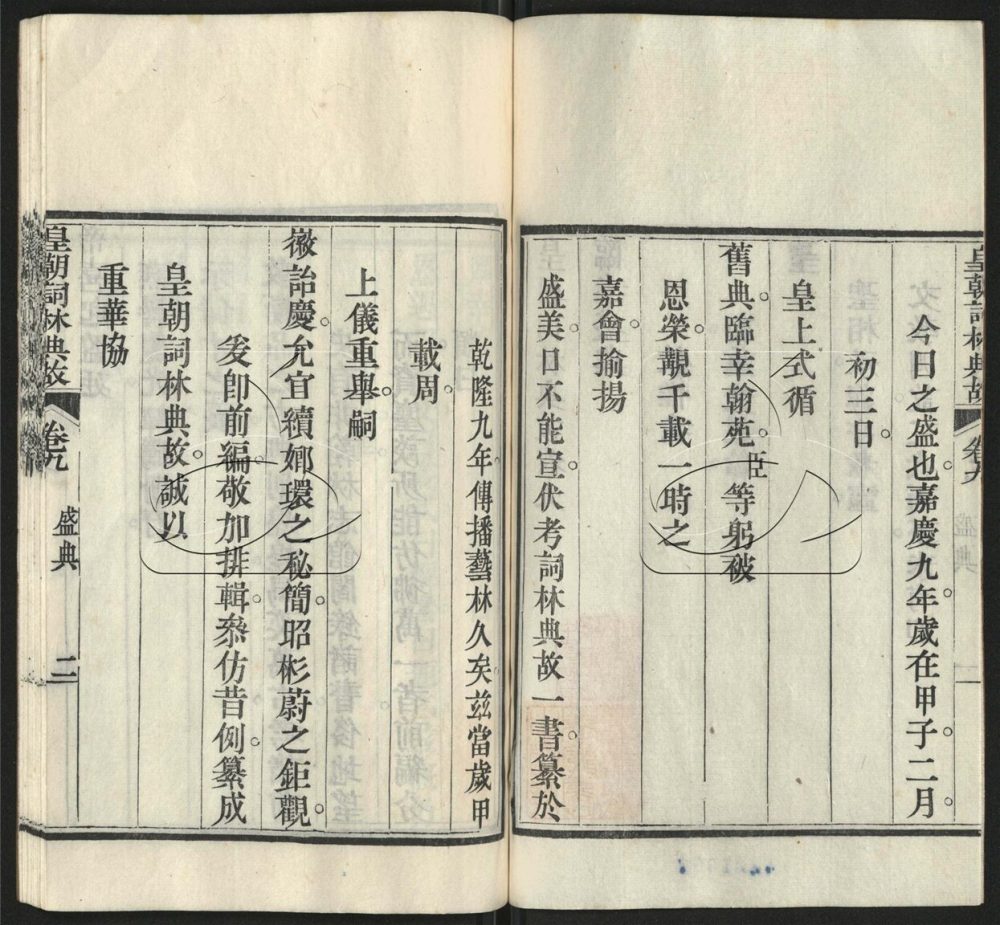 皇朝詞林典故 卷九 一
今日之盛也嘉慶九年歲在甲子二月
初三日
皇上式循
舊典臨幸翰苑臣等躬被
恩榮覩千載一時之
嘉會揄揚
盛美口不能宣伏考詞林典故一書纂於
乾隆九年傳播藝林久矣茲當歲甲
載周
上儀重舉嗣
徽詒慶允宜續嫏環之秘簡昭彬蔚之鉅觀
爰卽前編敬加排輯叅仿昔例纂成
皇朝詞林典故誠以
重華協
皇朝詞林典故 卷九 盛典 二